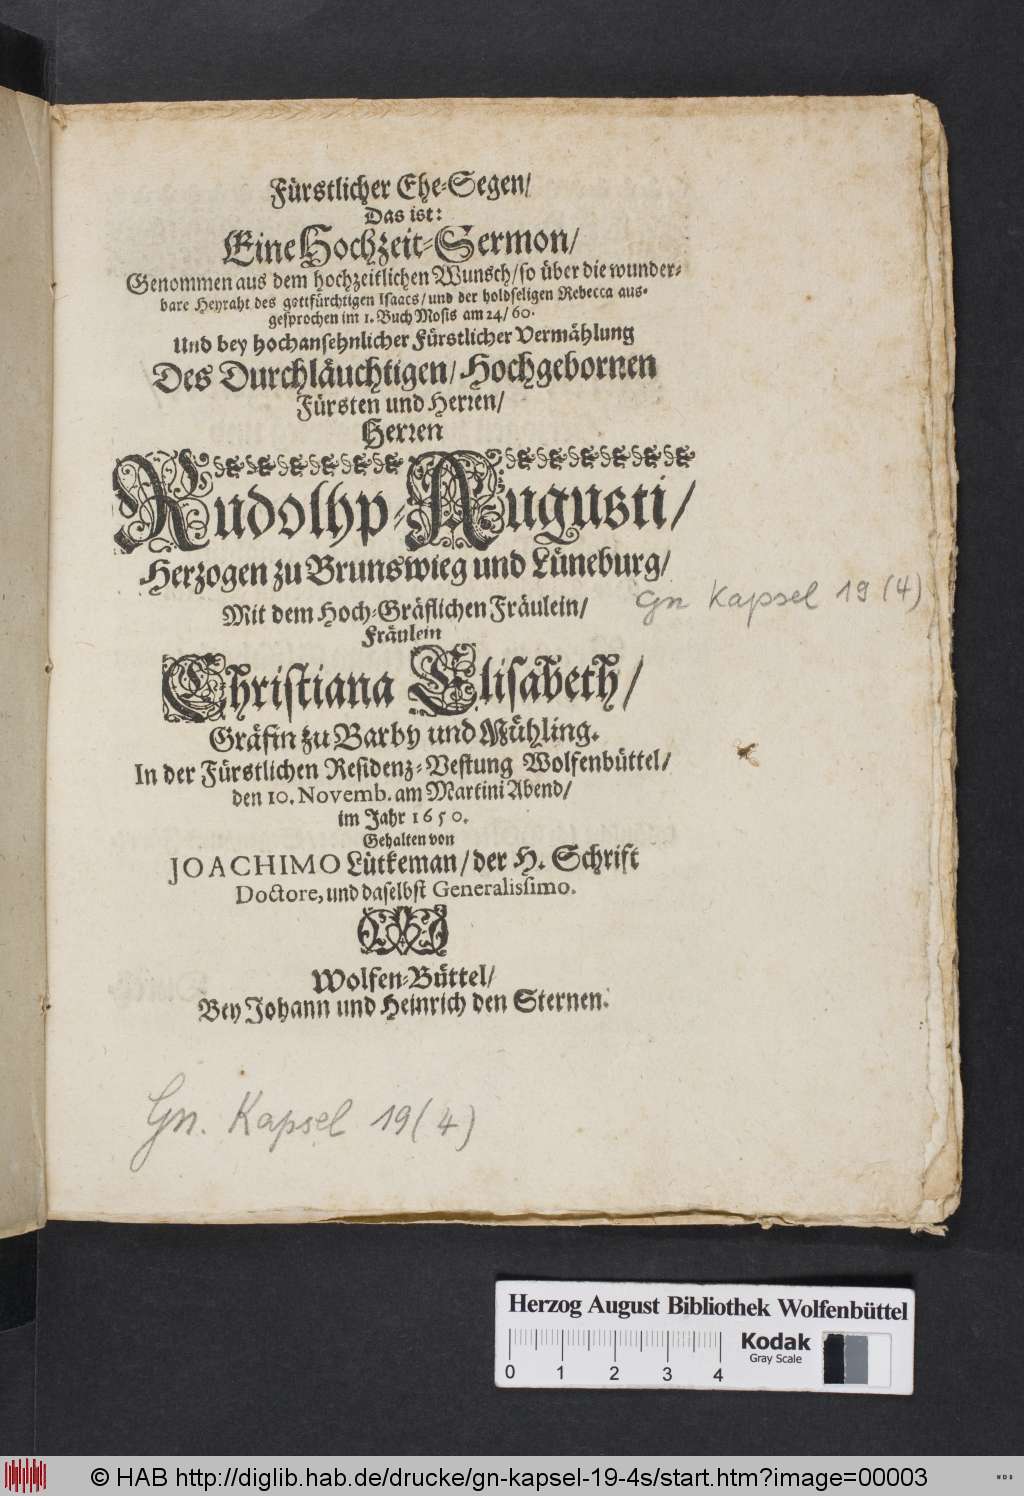 Fürstlicher Ehe-Segen/
Das ist:
Eine Hochzeit-Sermon/
Genommen aus dem hochzeitlichen Wunsch/ so über die wunder-
bare Heyraht des gottfürchtigen Isaacs/ und der holdseligen Rebecca aus-
gesprochen im 1. Buch Mosis am 24/ 60.
Und bey hochansehnlicher Fürstlicher Vermählung
Des Durchläuchtigen/ Hochgebornen
Fürsten und Herren/
Herren
Rudolhp-Augusti/
Herzogen zu Brunswieg und Lüneburg/
Mit dem Hoch-Gräflichen Fräulein/
Fräulein
Christiana Elisabeth/
Gräfin zu Barby und Mühling.
In der Fürstlichen Residenz-Vestung Wolfenbüttel/
den 10. Novemb. am Martini Abend/
im Jahr 1650.
Gehalten von
JOACHIMO Lütkeman/ der H. Schrift
Doctore, und daselbst Generalissimo.
Wolfen-Büttel/
Bey Johann und Heinrich den Sternen.
Gn Kapsel 19 (4)
Gn. Kapsel 19 (4)
Herzog August Bibliothek Wolfenbüttel
0 1 2 3 4
Kodak
Gray Scale
© HAB http://diglib.hab.de/drucke/gn-kapsel-19-4s/start.htm?image=00003